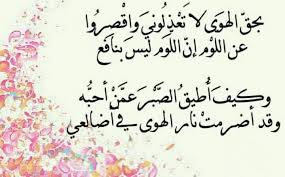 بحقّ الهوَى لا تَعْذِلُونيَ واقْصِرُوا
عن اللوْم إنّ اللومَ ليسَ بنافعِ
وكيفَ أُطيقُ الصَّبْرَ عمّنْ أحبُّه
وقد أضرِمتْ نار الهوى في أضالعي